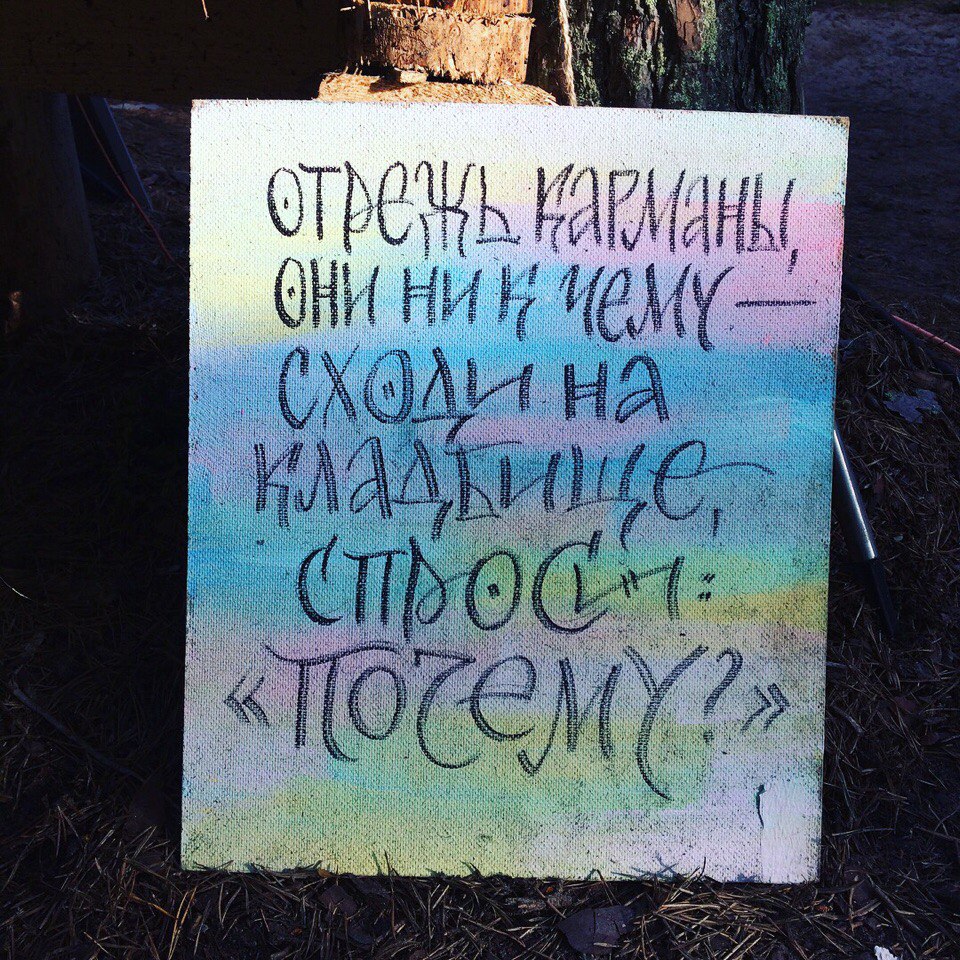 ОТРЕЖЬ КАРМАНЫ,
ОНИ НИ К ЧЕМУ —
СХОДИ НА
КЛАДБИЩЕ,
СПРОСИ:
«ПОЧЕМУ?»